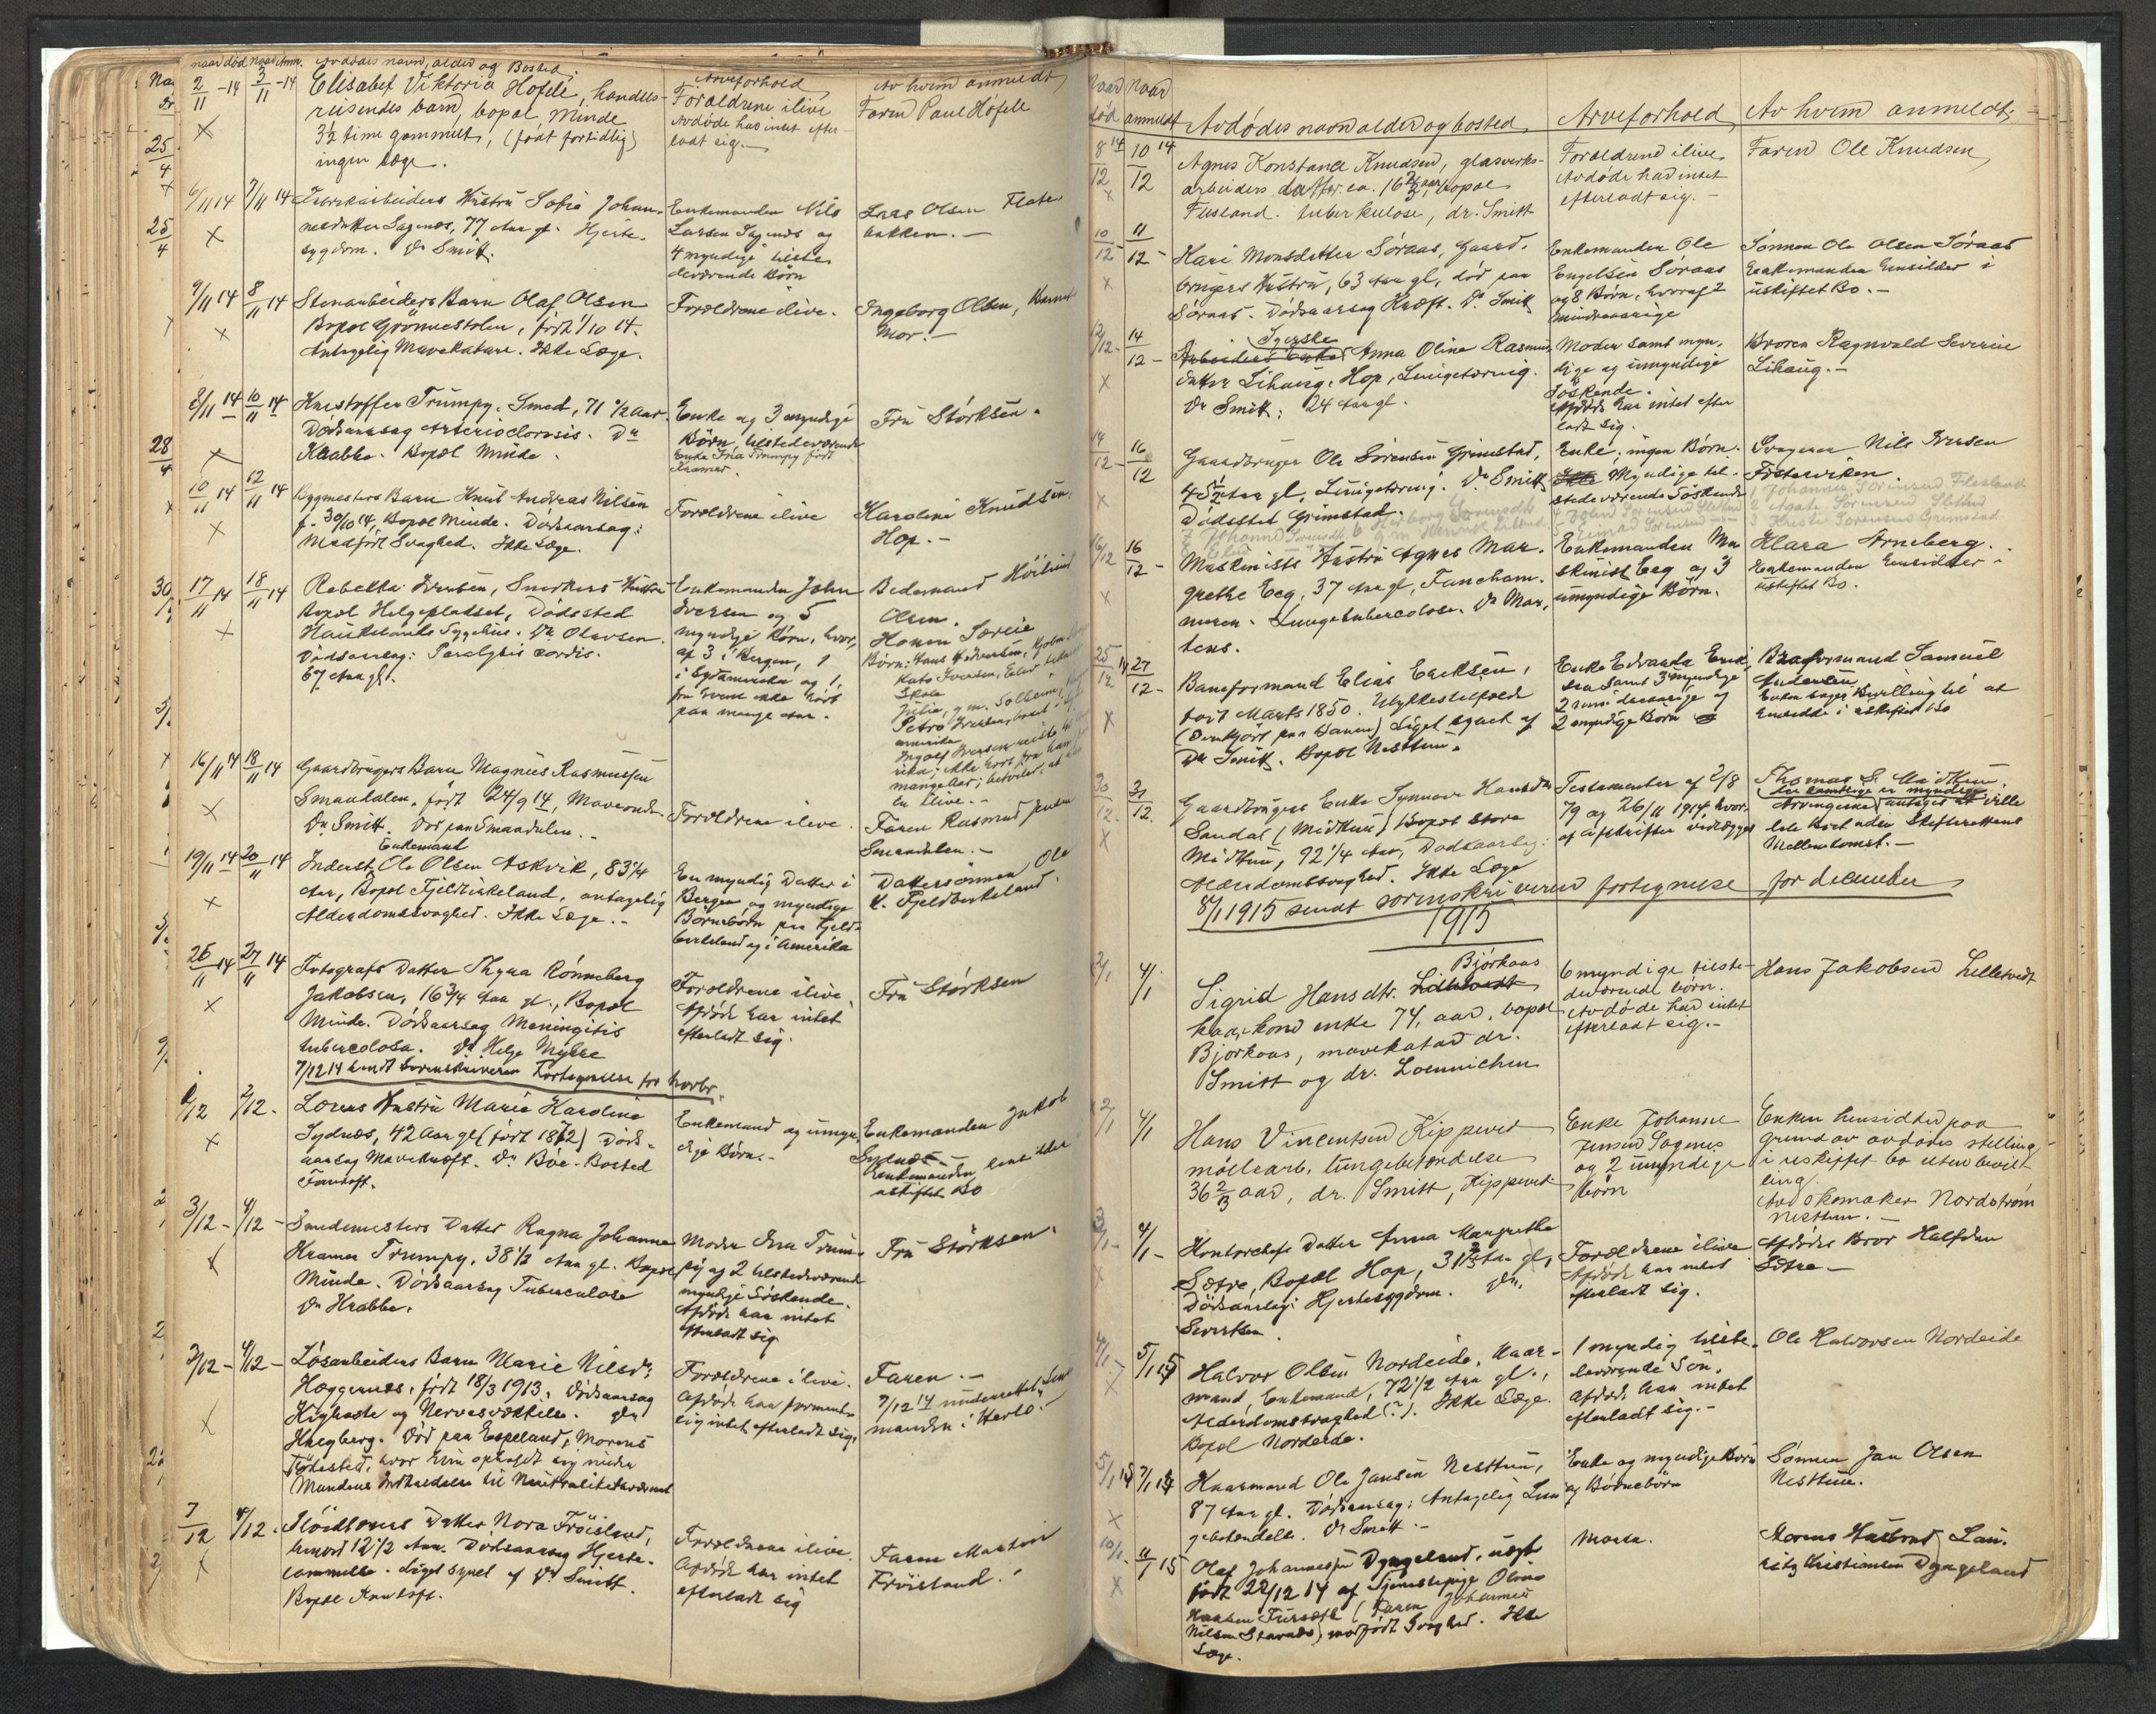 naar død naar Anm. Avdødes navn, alder og Bosted
Arveforhold
Av hvem anmeldt
2/11 -14 3/11 -14 Elisabet Viktoria Höfele, handels-
reisendes barn, bopæl Minde
3½ time gammelt, (født fortidlig)
ingen læge.
Forældrene ilive
Avdøde har intet efter-
ladt sig.-
Faren Paul Höfele
6/11 14 7/11 14 Fabrikarbeiders Hustru Sofie Johan-
nesdatter Sagenes, 77 Aar gl. Hjerte-
sygdom. Dr Smitt.
Enkemanden Nils
Larsen Sagenes og
4 myndige tilste-
deværende Børn
Lars Olsen Flate-
bakken.-
7/11 14 8/11 14 Stenarbeiders Barn Olaf Olsen
Bopæl Grönnestølen, født 1/10 14.
Antagelig Mavekatarr. Ikke Læge.
Forældrene ilive.
Ingeborg Olsen, Barnets
Mor.-
8/11 14 10/11 14 Kristoffer Trumpy, Smed, 71 ½ Aar.
Dødsaarsag Arteriosclorosis. Dr
Krabbe. Bopæl Minde.
Enke og 3 myndige
Børn tilstedeværende
Enke Ina Trumpy født
Kramer.
Frü Störksen.
10/11 14 12/11 14 Bygmesters Barn Knut Andreas Nilsen
f. 30/10 14, Bopæl Minde. Dødsaarsag:
Medfødt Svaghed. Ikke Læge.
Forældrene ilive
Karoline Knudsen,
Hop.-
17/11 14 18/11 14 Rebekka Iversen, Snekkers Hustru
Bopæl Helgeplasset, Dødssted
Haukelands Sygehus. Dr Olavsen.
Dødsaarsag: Paralysis cordis.
67 Aar gl.
Enkemanden John
Iversen og 5
myndige Børn, hvor-
af 3 i Bergen, 1
i Sydamerika og 1,
fra hvem ikke hørt
paa mange Aar.
Bedemand
Olsen.
Børn: Hans
Petra Iversen
Ingolf Iversen reiste
ilive.-
16/11 14 18/11 14 Gaardbrugers Barn Magnus Rasmussen
Smaadalen, født 24/9 14, Maveonde
Dr Smitt. Død paa Smaadalen.-
Forældrene ilive.
Faren Rasmus
Smaadalen.-
19/11 14 20/11 14 Inderst, Enkemand Ole Olsen Askvik, 83 ¼
Aar, Bopæl Fjeldbirkeland, antagelig
Alderdomssvaghed. Ikke Læge.-
En myndig Datter i
Bergen og myndige
Børnebørn paa Fjeld-
birkeland og i Amerika
Dattersønnen Ole
K. Fjeldbirkeland.
26/11 14 27/11 14 Fotografs Datter Thyra Rønneberg
Jakobsen, 16 ¾ Aar gl., Bopæl
Minde. Dødsaarsag Meningitis
tubercolosa. Dr Helge Mykle
7/12 14 sendt Sorenskriveren Fortegnelse for Novbr.
Forældrene ilive,
Afdøde har intet
efterladt sig.
Frü Störksen
1/12 2/12. Lærers Hustru Marie Karoline
Sydnæs, 42 Aar gl (født 1872) Døds-
aarsag Mavekræft. Dr Böe. Bosted
Fantoft.
Enkemand og umyn-
dige Børn.-
Enkemanden Jakob
Sydnæs.-
Enkemanden hensidder
uskiftet Bo
3/12 - 4/12 - Smedemesters Datter Ragna Johanne
Kramer Trumpy, 38 ½ Aar gl. Bopæl
Minde. Dødsaarsag Tuberculose
Dr Krabbe.
Moder Ina Trum-
py og 2 tilstedeværende
myndige Søskende.
Afdøde har intet
efterladt sig
Frü Störksen.
3/12 - 4/12 - Løsarbeiders Barn Marie Nilsdr
Hæggernæs, født 18/3 1913. Dødsaarsag
Kighoste og Nervesvækkelse. Dr
Kregberg. Død paa Espeland, Morens
Fødested, hvor hun opholdt sig under
Mandens Indkaldelse til Neutralitetsværnet
Forældrene ilive.
Afdøde har forment-
lig intet efterladt sig.
Faren.-
7/12 14 underrettet Lens-
manden i Herlö.-
7/12 8/12. Slöidlærers Datter Nora Fröisland,
henved 12 ½ Aar. Dødsaarsag Hjerte-
lammelse. Liget synet af Dr Smitt.
Bopæl Fantoft.
Forældrene ilive.
Afdøde har intet
efterladt sig
Faren Martin
Fröisland.-
Naar død Naar anmeldt Avdødes navn alder og bosted Arveforhold Av hvem anmeldt
8/12 14 10/12 14 Agnes Konstanse Knudsen, glasverks-
arbeiders datter. ca. 16 ⅔ aar, bopæl
Flesland. tuberkulose, dr. Smitt
Forældrene ilive
Avdøde har intet
efterladt sig.-
Faren Ole Knudsen
10/12 - 11/12 - Kari Monsdatter Söraas, Gaard-
brugers Hustru, 63 Aar gl, død paa
Söraas. Dødsaarsag Kræft. Dr Smitt
Enkemanden Ole
Engelsen Söraas
og 8 Börn, hvoraf 2
mindreaarige
Sønnen Ole Olsen Söraas
Enkemanden hensidder i
uskiftet Bo.-
12/12 - 14/12 - Arbeiders Enke Syerske Anna Oline Rasmus-
datter Lihaug, Hop, Lungetæring.
Dr Smitt. 24 Aar gl.
Moder samt myn-
dige og umyndige
Söskende.
Afdøde har intet efter
ladt sig.
Broren Ragnvald Severin
Lihaug.-
14/12 - 16/12 Gaardbruger Ole Sörensen Grimstad,
45 ½ Aar gl, Lungetæring. Dr Smitt
Dødssted Grimstad.
Enke; ingen Börn.
Myndige til-
stedeværende Söskende
Svogeren Nils Iversen
Fösterviken.
1 Johannes Sörensen Flesland
2 Agate Sörensen Sletten
3 Kristi Sorensen Grimstad
16/12 16/12 - Maskinists Hustru Agnes Mar-
grethe Eeg, 37 Aar gl, Fancham-
meren. Lungetubercolose. Dr Mar-
tens.
Enkemanden Ma-
skinist Eeg og 3
umyndige Börn.
Klara Arneberg.
Enkemanden hensidder i
uskiftet Bo.
25/12 14 27/12 - Baneformand Elias Eriksen,
født Marts 1850. Ulykkestilfælde
(Overkjørt paa Banen) Liget synet af
Dr Smitt. Bopæl Nesttun.
Enke Edvarda Erik-
sen samt 3 myndige
2 mindreaarige og
2 myndige Børn
Banformand Samuel
Andersen
Enken søger Bevilling til at
hensidde i uskiftet Bo
30/12 - 31/12. Gaardbrugers Enke Synneve Hansdtr
Sandal (Midttun) Bopæl Store
Midttun, 92 ¼ Aar, Dødsaarsag:
Alderdomssvaghed. Ikke Læge
Testamenter af 2/8
79 og 26/11 1914 hvor-
af Afskrifter vedlægges
Thomas S. Midttun.
Arvingerne der samtlige er myndige antages at ville
dele Boet uden Skifterettens
Mellemkomst.-
8/1 1915 sendt sorenskriveren fortegnelse for december
1915
2/1 4/1 Sigrid Hansdtr. Lilletvedt Björkaas
kaarkone enke 74, aar, bopæl
Bjorkaas, mavekatar dr.
Smitt og dr. Loennichen
6 myndige tilste-
deværende børn.
Avdøde har intet
efterladt sig.-
Hans Jakobsen Lilletvedt
2/1 4/1 Hans Vincentsen Kippervi
møllearb. lungebetændelse
36 ⅔ aar, dr. Smitt, Kippervi
Enke Johanne
Jensen Sagenes
og 2 umyndige
børn
Enken hensidder paa
grund av avdødes stilling
i uskiftet bo uten bevil-
ling.
Av skomaker Nordström
Nesttun.-
3/1 - 4/1 - Kontorchefs Datter Anna Margrethe
Sætre, Bopæl Hop, 31 ⅔ Aar gl,
Dødsaarsag: Hjertesygdom. Dr.
Sivertsen.
Forældrene ilive
Afdøde har intet
efterladt sig.
Afdødes Bror Halfdan
Sætre-
4/1 - 5/1 15 Halvor Olsen Nordeide, Kaar-
mand, Enkemand, 72 ½ Aar gl.,
Alderdomssvaghed(?). Ikke Læge.
Bopæl Nordeide.
1 myndig tilste-
deværende Sön.
Afdøde har intet
efterladt sig.-
Ole Halvorsen Nordeide
5/1 15 7/1 15 Kaarmand Ole Jansen Nesttun,
87 Aar gl. Dødsaarsag: Antagelig Lun-
gebetændelse. Dr Smitt.-
Enke og myndige Børn
og Børnebörn
Sønnen Jan Olsen
Nesttun.
10/1 - 11/1 15 Olaf Johannessen Dyngeland, uegte
født 22/12 14 af Tjenestepige Oline
Hansen Furesæth (Faren Johannes
Nilsen Stavnes) medfødt Svaghed. Ikke
Læge.
Moren.
Morens Husbond Lau-
ritz Kristiansen Dyngeland